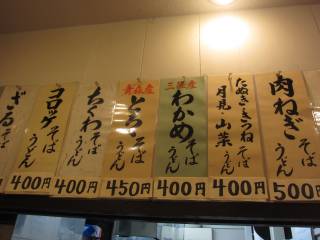 肉ねぎそばうどん
500円
たぬき・きつね
月見・山菜そばうどん
400円
三陸産
わかめそばうどん
400円
青森産
とろろそばうどん
450円
ちくわそばうどん
400円
コロッケそばうどん
400円
ざるそばうどん